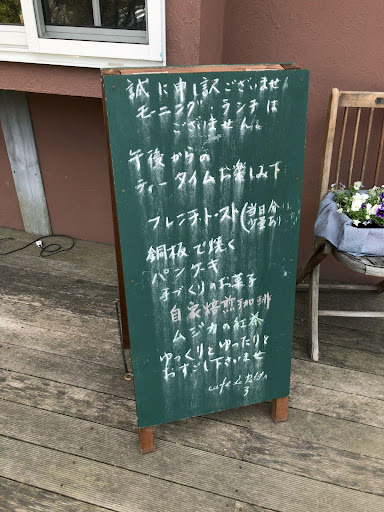 誠に申し訳ございません
モーニング・ランチは
ございません。
午後からの
ティータイムお楽しみ下
フレンチ・トースト(当日分
少量あり)
銅板で焼く
パンケーキ
手づくりのお菓子
自家焙煎珈琲
ムジカの紅茶
ゆっくりとゆったりと
おすごし下さいませ
cafe